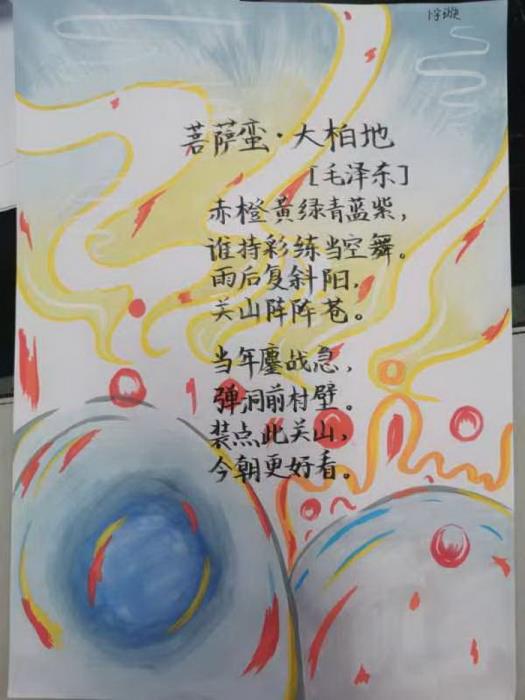 菩萨蛮·大柏地
[毛泽东]
赤橙黄绿青蓝紫，
谁持彩练当空舞。
雨后复斜阳，
关山阵阵苍。
当年鏖战急，
弹洞前村壁。
装点此关山，
今朝更好看。